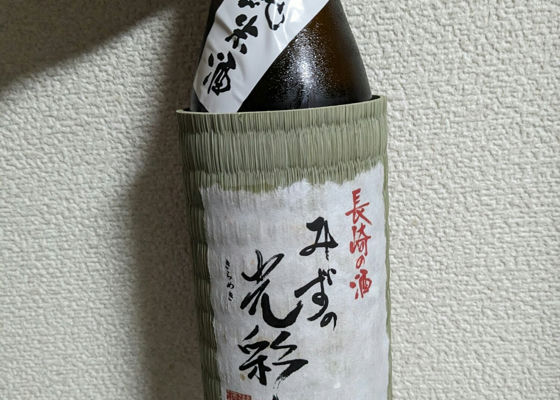 米酒
長崎の酒
みずの
光彩
きらめき